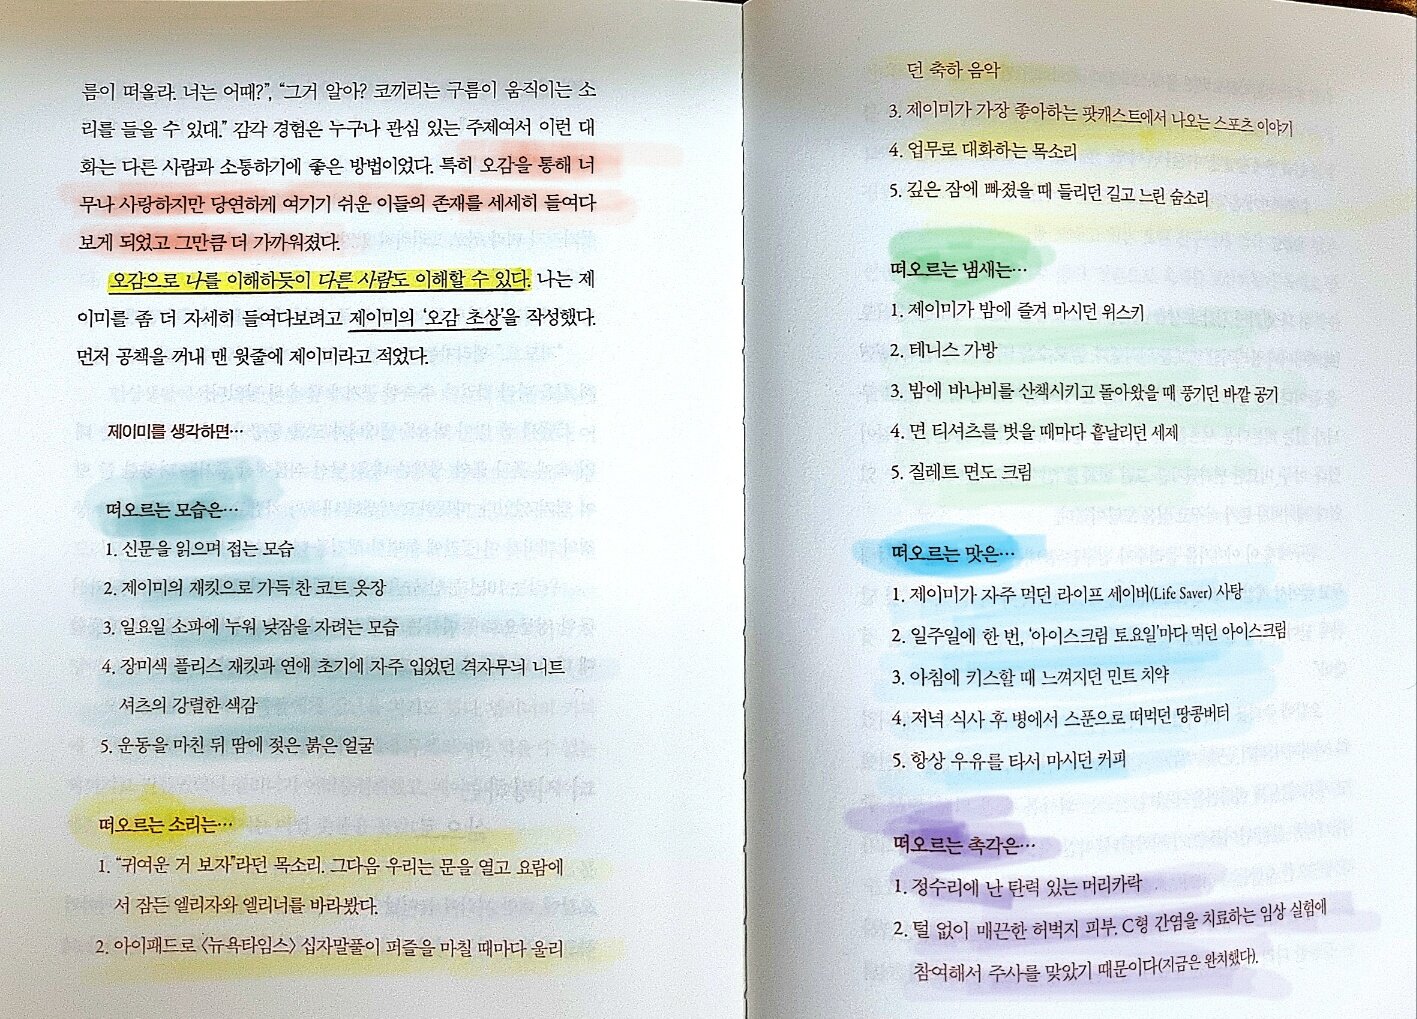 름이 떠올라. 너는 어때?”, “그거 알아? 코끼리는 구름이 움직이는 소
리를 들을 수 있대.” 감각 경험은 누구나 관심 있는 주제여서 이런 대
화는 다른 사람과 소통하기에 좋은 방법이었다. 특히 오감을 통해 너
무나 사랑하지만 당연하게 여기기 쉬운 이들의 존재를 세세히 들여다
보게 되었고 그만큼 더 가까워졌다.
오감으로 나를 이해하듯이 다른 사람도 이해할 수 있다. 나는 제
이미를 좀 더 자세히 들여다보려고 제이미의 ‘오감 초상’을 작성했다.
먼저 공책을 꺼내 맨 윗줄에 제이미라고 적었다.
제이미를 생각하면…
떠오르는 모습은…
1. 신문을 읽으며 접는 모습
2. 제이미의 재킷으로 가득 찬 코트 옷장
3. 일요일 소파에 누워 낮잠을 자려는 모습
4. 장미색 플리스 재킷과 연애 초기에 자주 입었던 격자무늬 니트
셔츠의 강렬한 색감
5. 운동을 마친 뒤 땀에 젖은 붉은 얼굴
떠오르는 소리는…
1. “귀여운 거 보자”라던 목소리. 그다음 우리는 문을 열고 요람에
서 잠든 엘리자와 엘리너를 바라봤다.
2. 아이패드로 〈뉴욕타임스〉 십자말풀이 퍼즐을 마칠 때마다 울리
던 축하 음악
3. 제이미가 가장 좋아하는 팟캐스트에서 나오는 스포츠 이야기
4. 업무로 대화하는 목소리
5. 깊은 잠에 빠졌을 때 들리던 길고 느린 숨소리
떠오르는 냄새는…
1. 제이미가 밤에 즐겨 마시던 위스키
2. 테니스 가방
3. 밤에 바나비를 산책시키고 돌아왔을 때 풍기던 바깥 공기
4. 면 티셔츠를 벗을 때마다 흩날리던 세제
5. 질레트 면도 크림
떠오르는 맛은…
1. 제이미가 자주 먹던 라이프 세이버(Life Saver) 사탕
2. 일주일에 한 번, ‘아이스크림 토요일’마다 먹던 아이스크림
3. 아침에 키스할 때 느껴지던 민트 치약
4. 저녁 식사 후 병에서 스푼으로 떠먹던 땅콩버터
5. 항상 우유를 타서 마시던 커피
떠오르는 촉각은…
1. 정수리에 난 탄력 있는 머리카락
2. 털 없이 매끈한 허벅지 피부. C형 간염을 치료하는 임상 실험에
참여해서 주사를 맞았기 때문이다(지금은 완치했다).